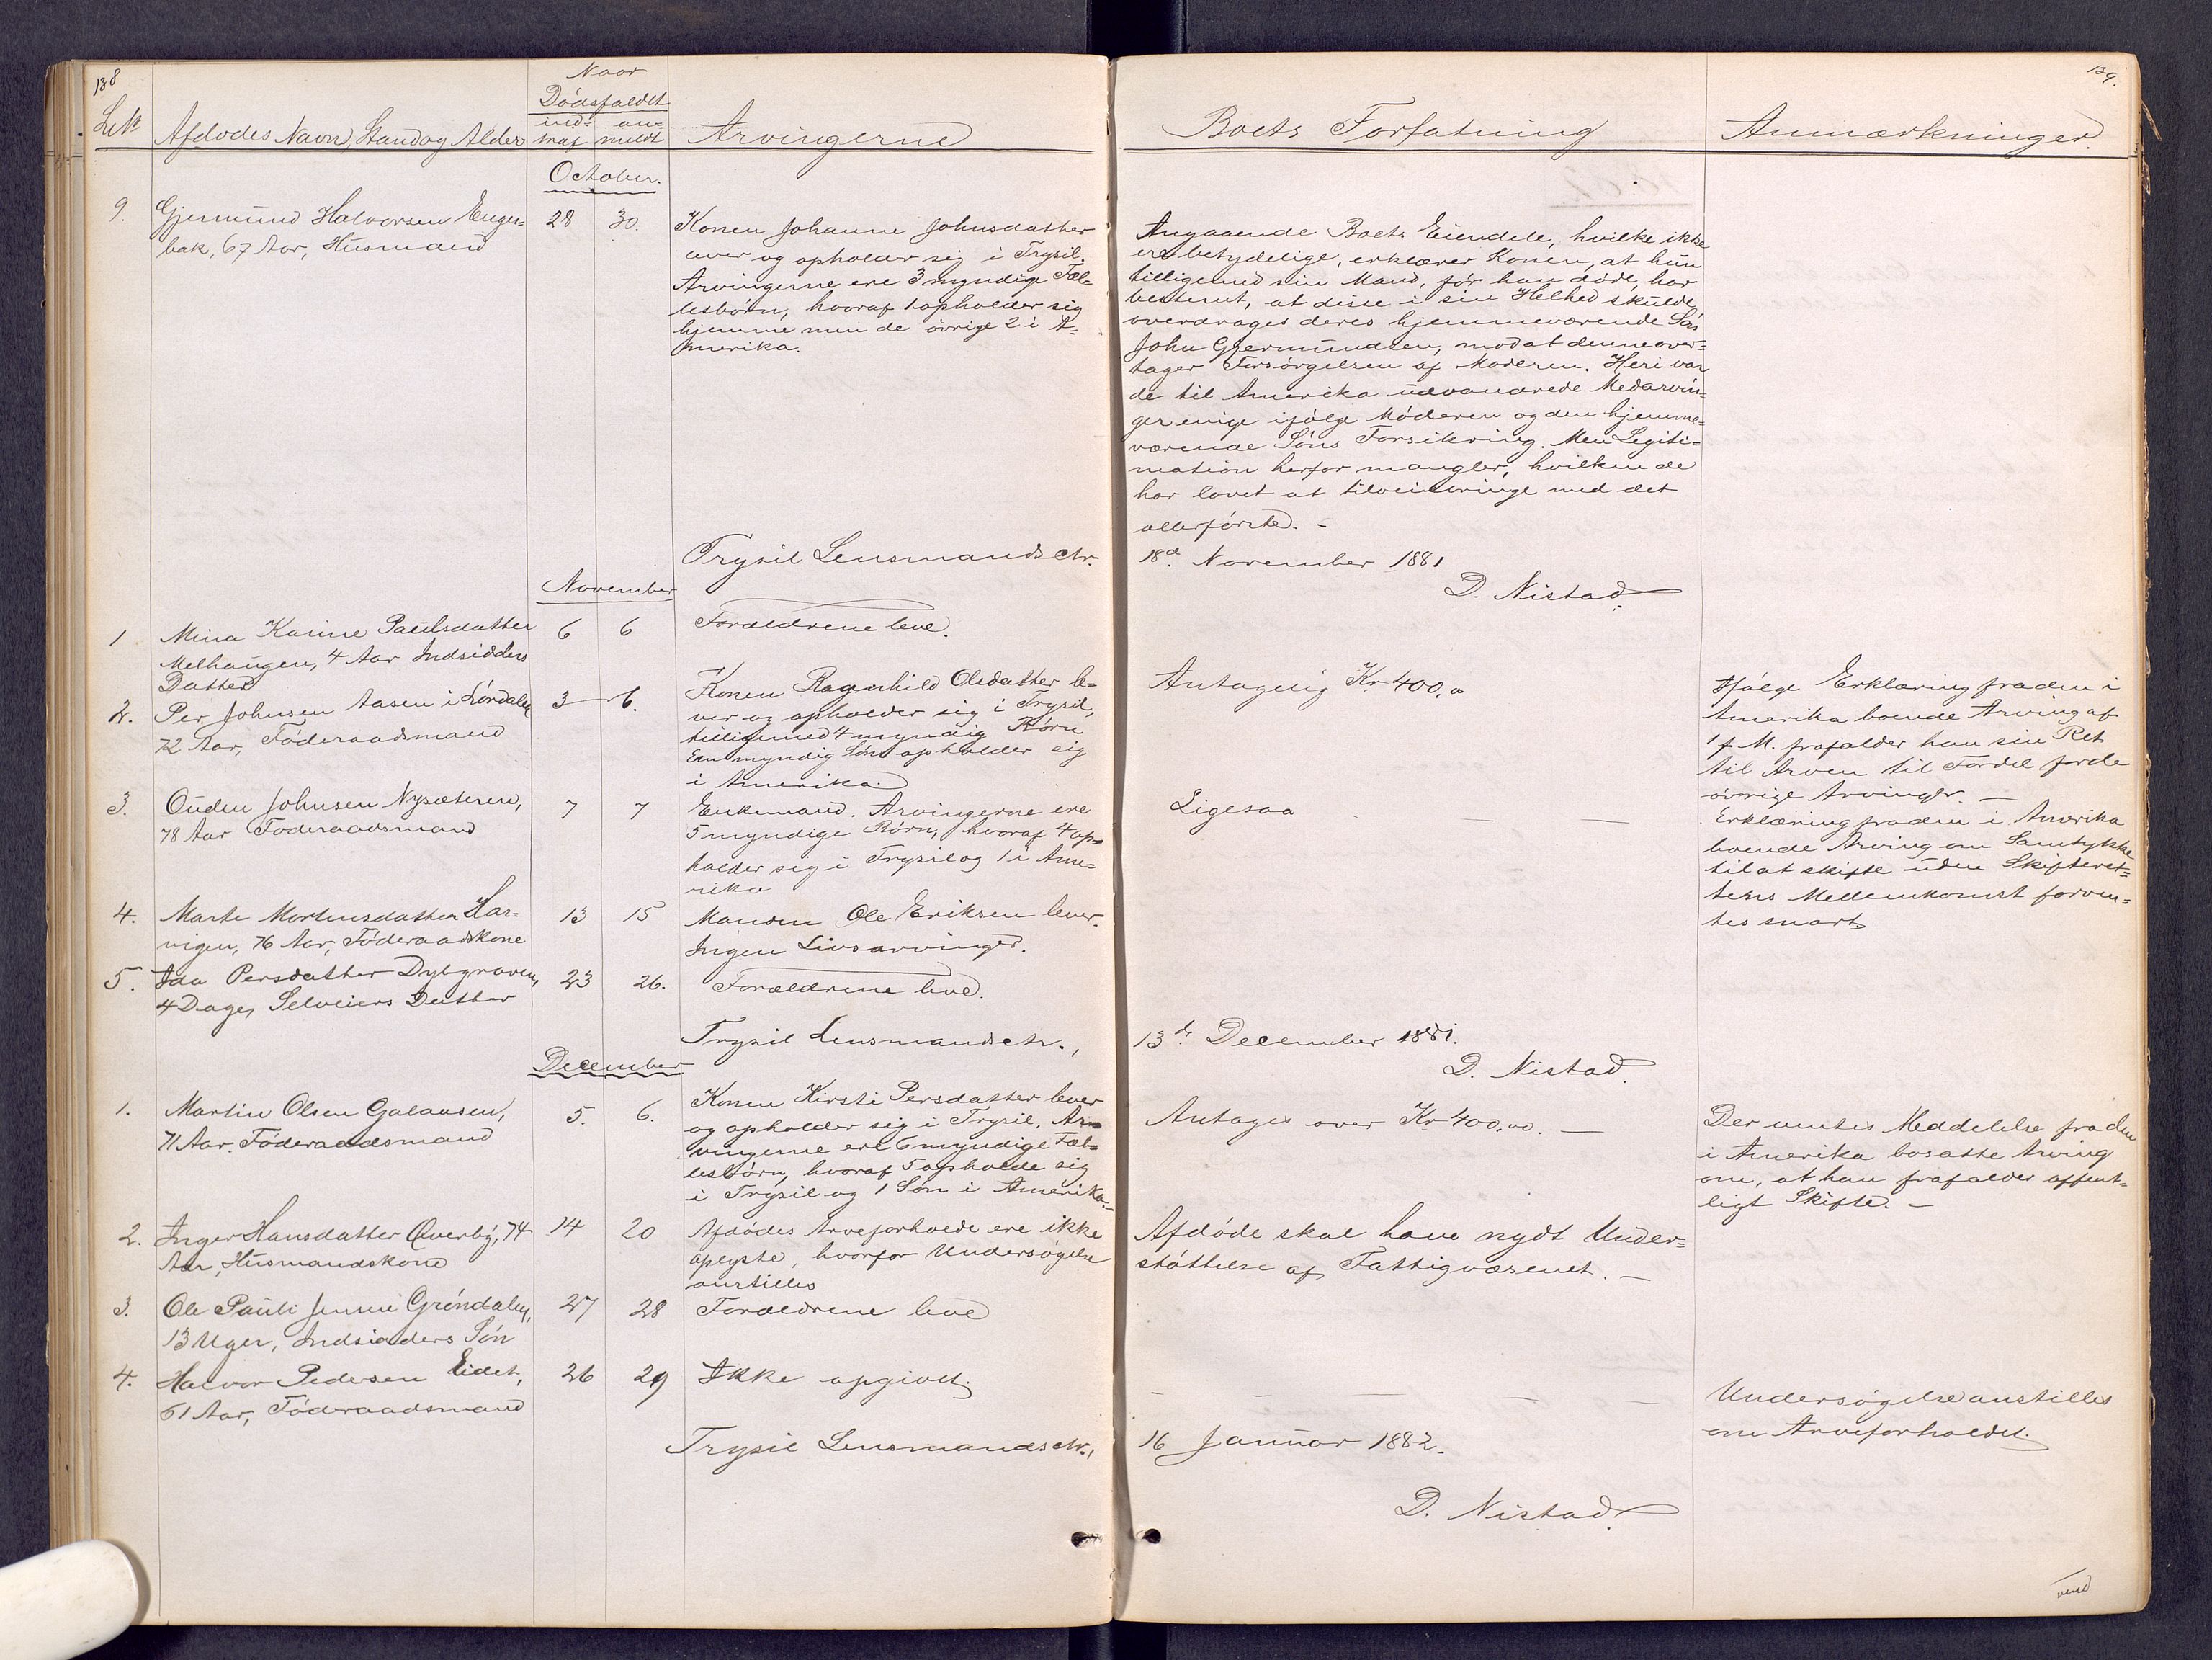 138
LNo
Afdødes Navn, Stand og Alder
Naar
Dødsfaldet
ind- an-
traf meldt
Arvingerne
October.
9. Gjermund Halvorsen Enger-
bak, 67 Aar, Husmand
28 30.
Konen Johanne Johnsdatter
lever og opholder sig i Trysil.
Arvingerne ere 3 myndige Fæl-
lesbørn, hvoraf 1 opholder sig
hjemme men de øvrige 2 i A-
merika.
Trysil Lensmandsctr.
November
1 Mina Karine Paulsdatter
Melhaugen, 4 Aar Indsidders
Datter
6 6
Forældrene leve.
2. Per Johnsen Aasen i Lørdalen
72 Aar, Føderaadsmand
3 6.
Konen Ragnhild Olsdatter le-
ver og opholder sig i Trysil,
tilligemed 4 myndig Børn
En myndig Søn opholder sig
i Amerika.
3. Ouden Johnsen Nysæteren,
78 Aar Føderaadsmand
7 7
Enkemand. Arvingerne ere
5 myndige Børn, hvoraf 4 op-
holder sig i Trysil og 1 i Ame-
rika
4. Marte Mortensdatter Har-
vigen, 76 Aar, Føderaadskone
13 15
Manden Ole Eriksen lever.
Ingen Livsarvinger.
5. Ida Persdatter Dybgraven,
4 Dage, Selveiers Datter
23 26.
Forældrene leve.
Trysil Lensmandsctr.,
December
1. Martin Olsen Galaasen,
71 Aar. Føderaadsmand
5. 6.
Konen Kirsti Persdatter lever
og opholder sig i Trysil. Ar-
vingerne ere 6 myndige Fæl-
lesbørn, hvoraf 5 opholde sig
i Trysil og 1 Søn i Amerika.-
2. Inger Hansdatter Øverby, 74
Aar, Husmandskone
14 20
Afdødes Arveforholde ere ikke
oplyste, hvorfor Undersøgelse
anstilles
3. Ole Pauli Jensen Grøndalen,
13 Uger, Indsidders Søn
27 28
Forældrene leve
4. Halvor Pedersen Eidet,
61 Aar, Føderaadsmand
26 29
Ikke opgivet.
Trysil Lensmandsctr.,
139.
Boets Forfatning
Anmærkninger.
Angaaende Boets Eiendele, hvilke ikke
ere betydelige, erklærer Konen, at hun
tilligemed sin Mand, før han døde, har
bestemt, at disse i sin Helhed skulde
overdrages deres hjemmeværende Søn
John Gjermundsen, mod at denne over-
tager Forsørgelsen af Moderen. Heri var
de til Amerika udvandrede Medarvin-
ger enige ifølge Moderen og den hjemme-
værende Søns Forsikring. Men Legiti-
mation herfor mangler, hvilken de
har lovet at tilveiebringe med det
allerførste. -
18d November 1881
D. Nistad.
Antagelig Kr 400,0
Ifølge Erklæring fra den i
Amerika boende Arving af
1 f. M. frafalder han sin Ret
til Arven til Fordel for de
øvrige Arvinger. -
Ligesaa - -
Erklæring fra den i Amerika
boende Arving om Samtykke
til at skifte uden Skifteret-
tens Mellemkomst forven-
tes snart
13de December 1881.
D. Nistad.
Antages over Kr 400,00. -
Der ventes Meddelelse fra den
i Amerika bosatte Arving
om, at han frafalder offent-
ligt Skifte. -
Afdøde skal have nydt Under-
støttelse af Fattigvæsenet. -
- - - - -
Undersøgelse anstilles
om Arveforholdet.
16 Januar 1882.
D. Nistad.